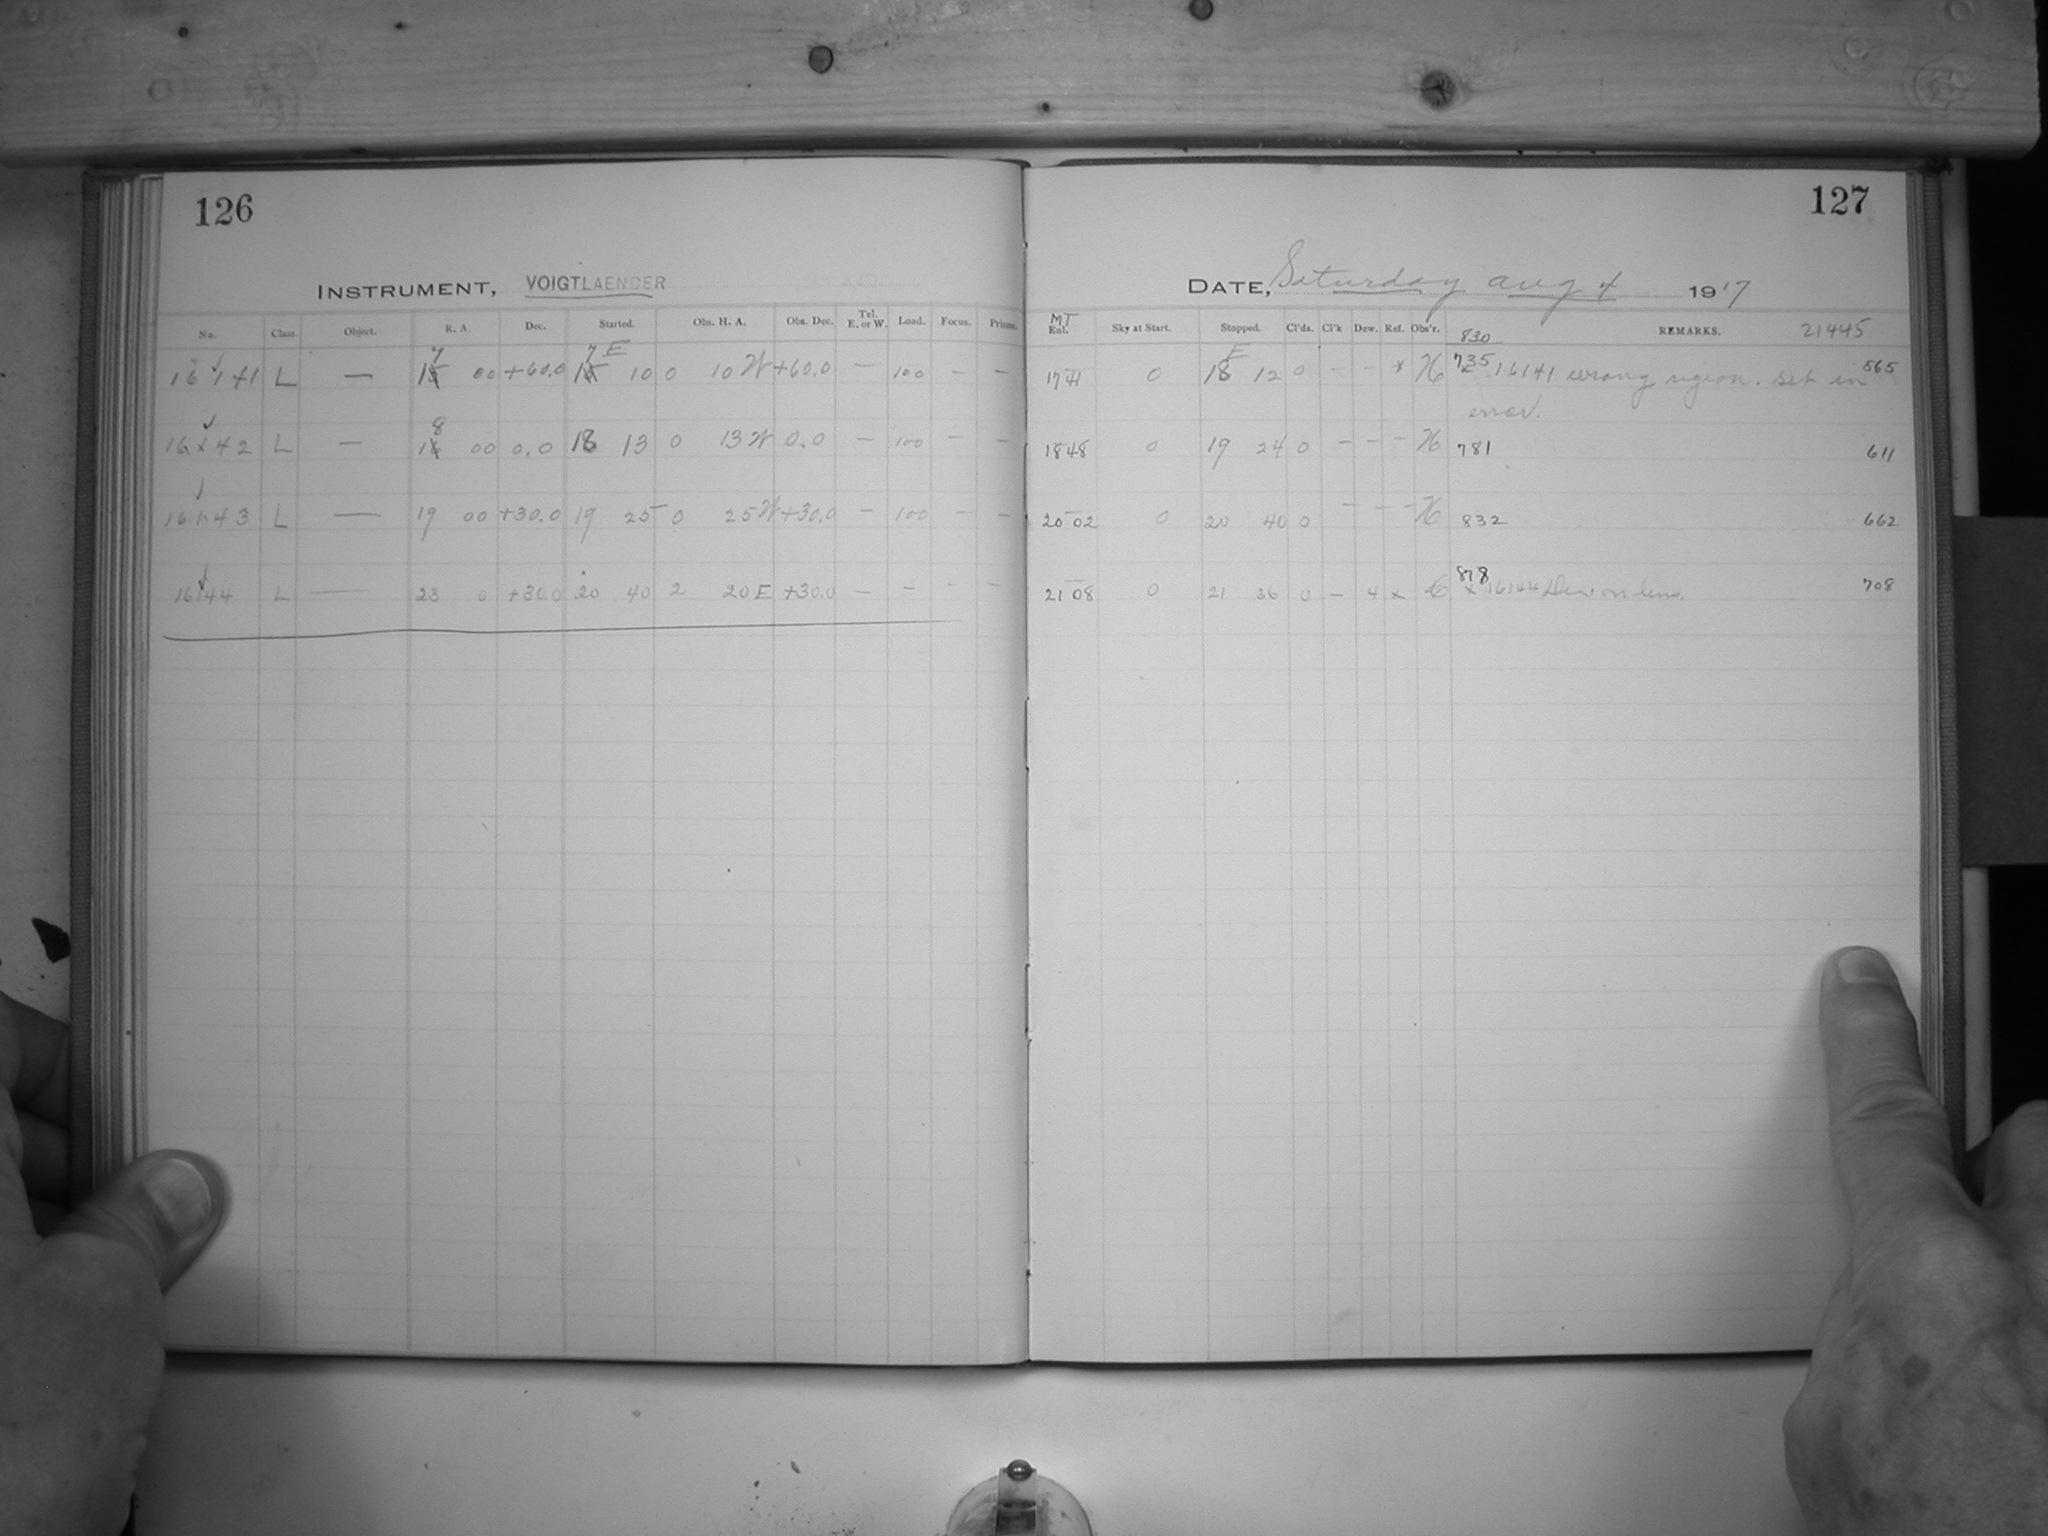 126
INSTRUMENT, VOIGTLAENDER
No. Class. Object. R. A. Dec. Started. Obs. H. A. Obs. Dec. Tel. E. or W. Load. Focus. Prisms.
7 7 E
16141 L — 15 00 +60.0 15 10 0 10 W +60.0 — 100 — —
8
16142 L — 16 00 0.0 18 13 0 13 W 0.0 — 100 — —
16143 L — 19 00 +30.0 19 25 0 25 W +30.0 — 100 — —
16144 L — 23 0 +30.0 20 40 2 20 E +30.0 — — — —
127
DATE, Saturday Aug 4 1917
MT
Exl. Sky at Start. Stopped. Cl'ds. Cl'k Dew. Ref. Obs'r. REMARKS. 21445
830
E
17 41 0 18 12 0 — — x H 735 x 16141 wrong region. Set in 565
error.
18 48 0 19 24 0 — — — H 781 611
20 02 0 20 40 0 — — — H 832 662
21 08 0 21 36 0 — 4 x C 878 x 16144 Dew on lens. 708